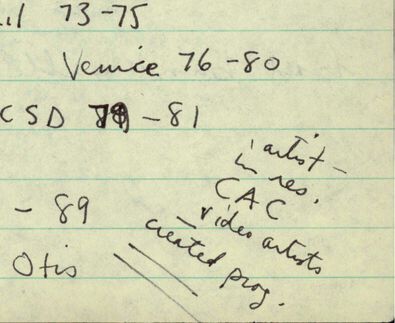 73-75
Venice 76-80
CSD 79-81
- 89
Otis
artist-
in res.
CAC
- video artists
created prog.